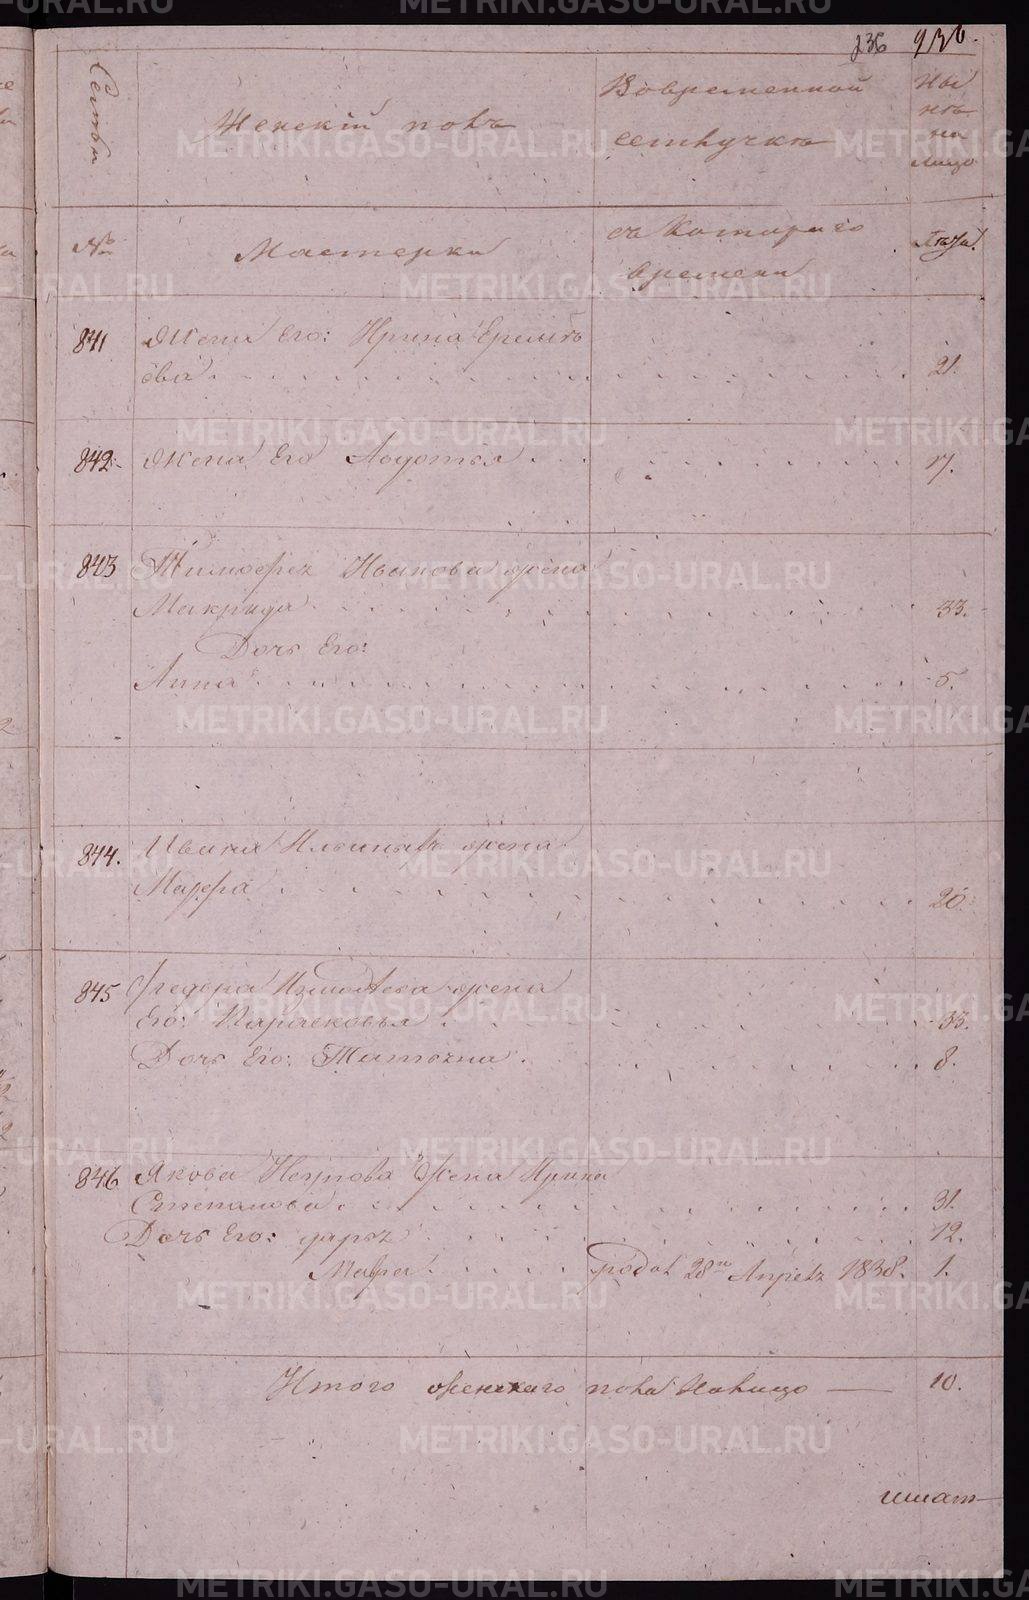 236 236.
Семьи
Женскій полъ
Вовременной
отлучкѣ
Ны
нѣ
на
лицо
№
Мастерки
съ Котораго
времени
Лѣта
841 Жена Его: Ирина
ова 21.
842 Жена Его Авдотья 17.
843 Тимофея Жена
Макрида 33.
Дочь Его:
Анна 5.
844. Ивана Жена
Марфа 20.
845 Федора Жена
Его: Парасковья 33.
Дочь Его: Татьяна 8.
846 Якова Жена Ирина
Степанова 31.
Дочь Его: Дарья 12.
Марфа родил 28го Апреля 1838. 1.
Итого женскаго пола Налицо — 10.
METRIKI.GASO-URAL.RU